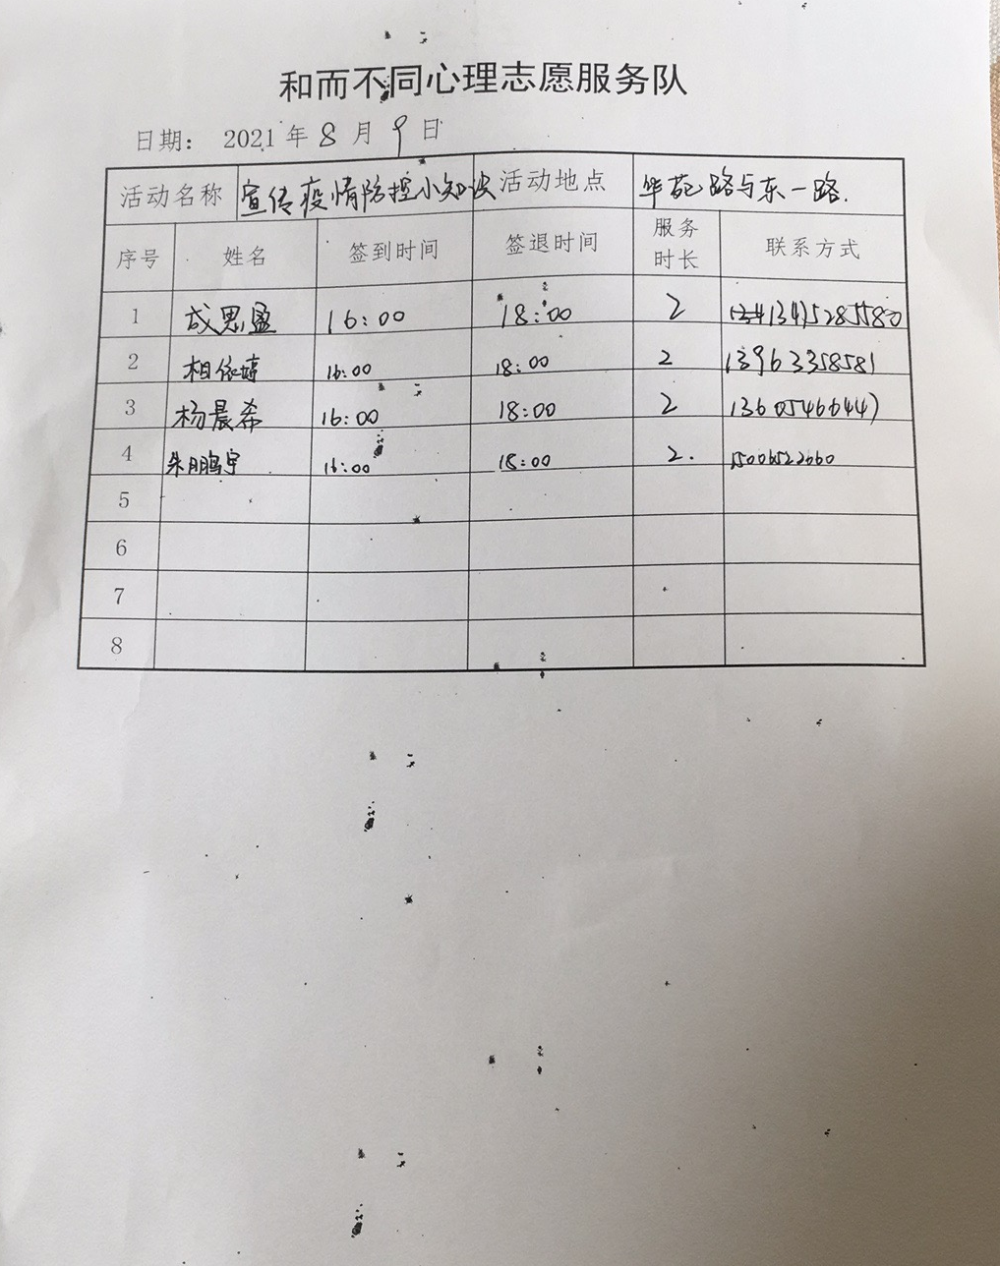 和而不同心理志愿服务队
日期： 2021 年 8 月 9 日
活动名称 宣传疫情防控小知识 活动地点 华苑路与东一路.
序号 姓名 签到时间 签退时间 服务时长 联系方式
1 成思盈 16:00 18:00 2 13475285580
2 相依婷 16:00 18:00 2 13963358581
3 杨晨希 16:00 18:00 2 13605466447
4 朱鹏宇 16:00 18:00 2. 15006522660
5
6
7
8